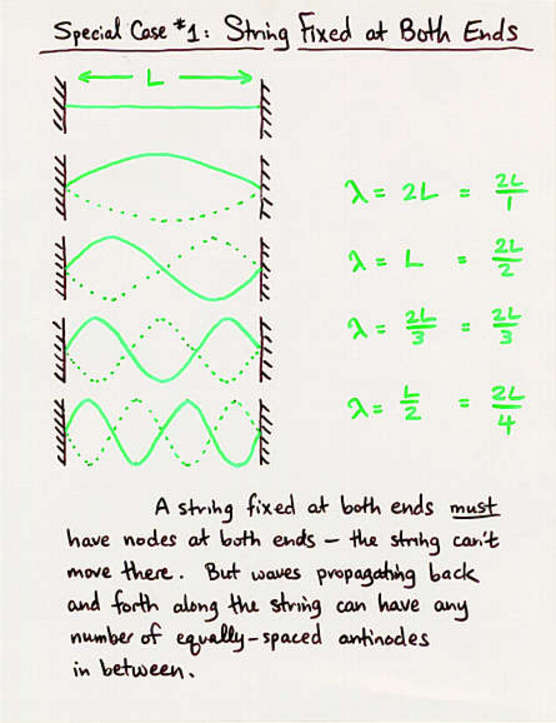 Special Case #1: String Fixed at Both Ends
L
λ = 2L = 2L/1
λ = L = 2L/2
λ = 2L/3 = 2L/3
λ = L/2 = 2L/4
A string fixed at both ends must
have nodes at both ends – the string can't
move there. But waves propagating back
and forth along the string can have any
number of equally-spaced antinodes
in between.